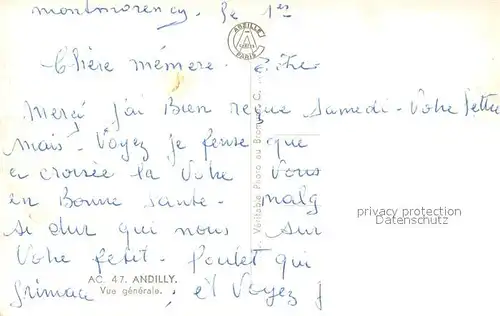 montmorency. Le 1er
ABEILLE
PARIS
Chère mémere.
Merci j'ai Bien reçue Samedi - Votre lettre
mais - Voyez je pense que
a croisée la Votre Vous
en Bonne Santé - malg
si dur qui nous sur
Votre petit - Poulet qui
grimace ; et Voyez j
Véritable Photo au Bromure
privacy protection
Datenschutz
AC. 47. ANDILLY.
Vue générale.